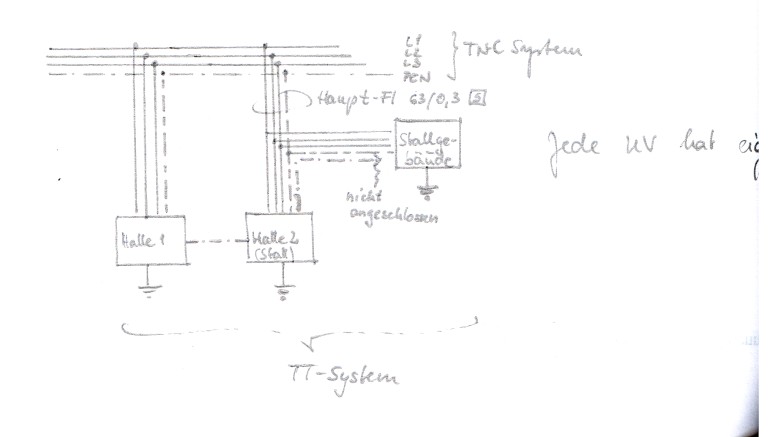 L1
L2
L3
PEN
TNC System
Haupt-FI 63/0,3 S
Stallge-
bäude
Jede UV hat
nicht
angeschlossen
Halle 1
Halle 2
(Stall)
TT-System